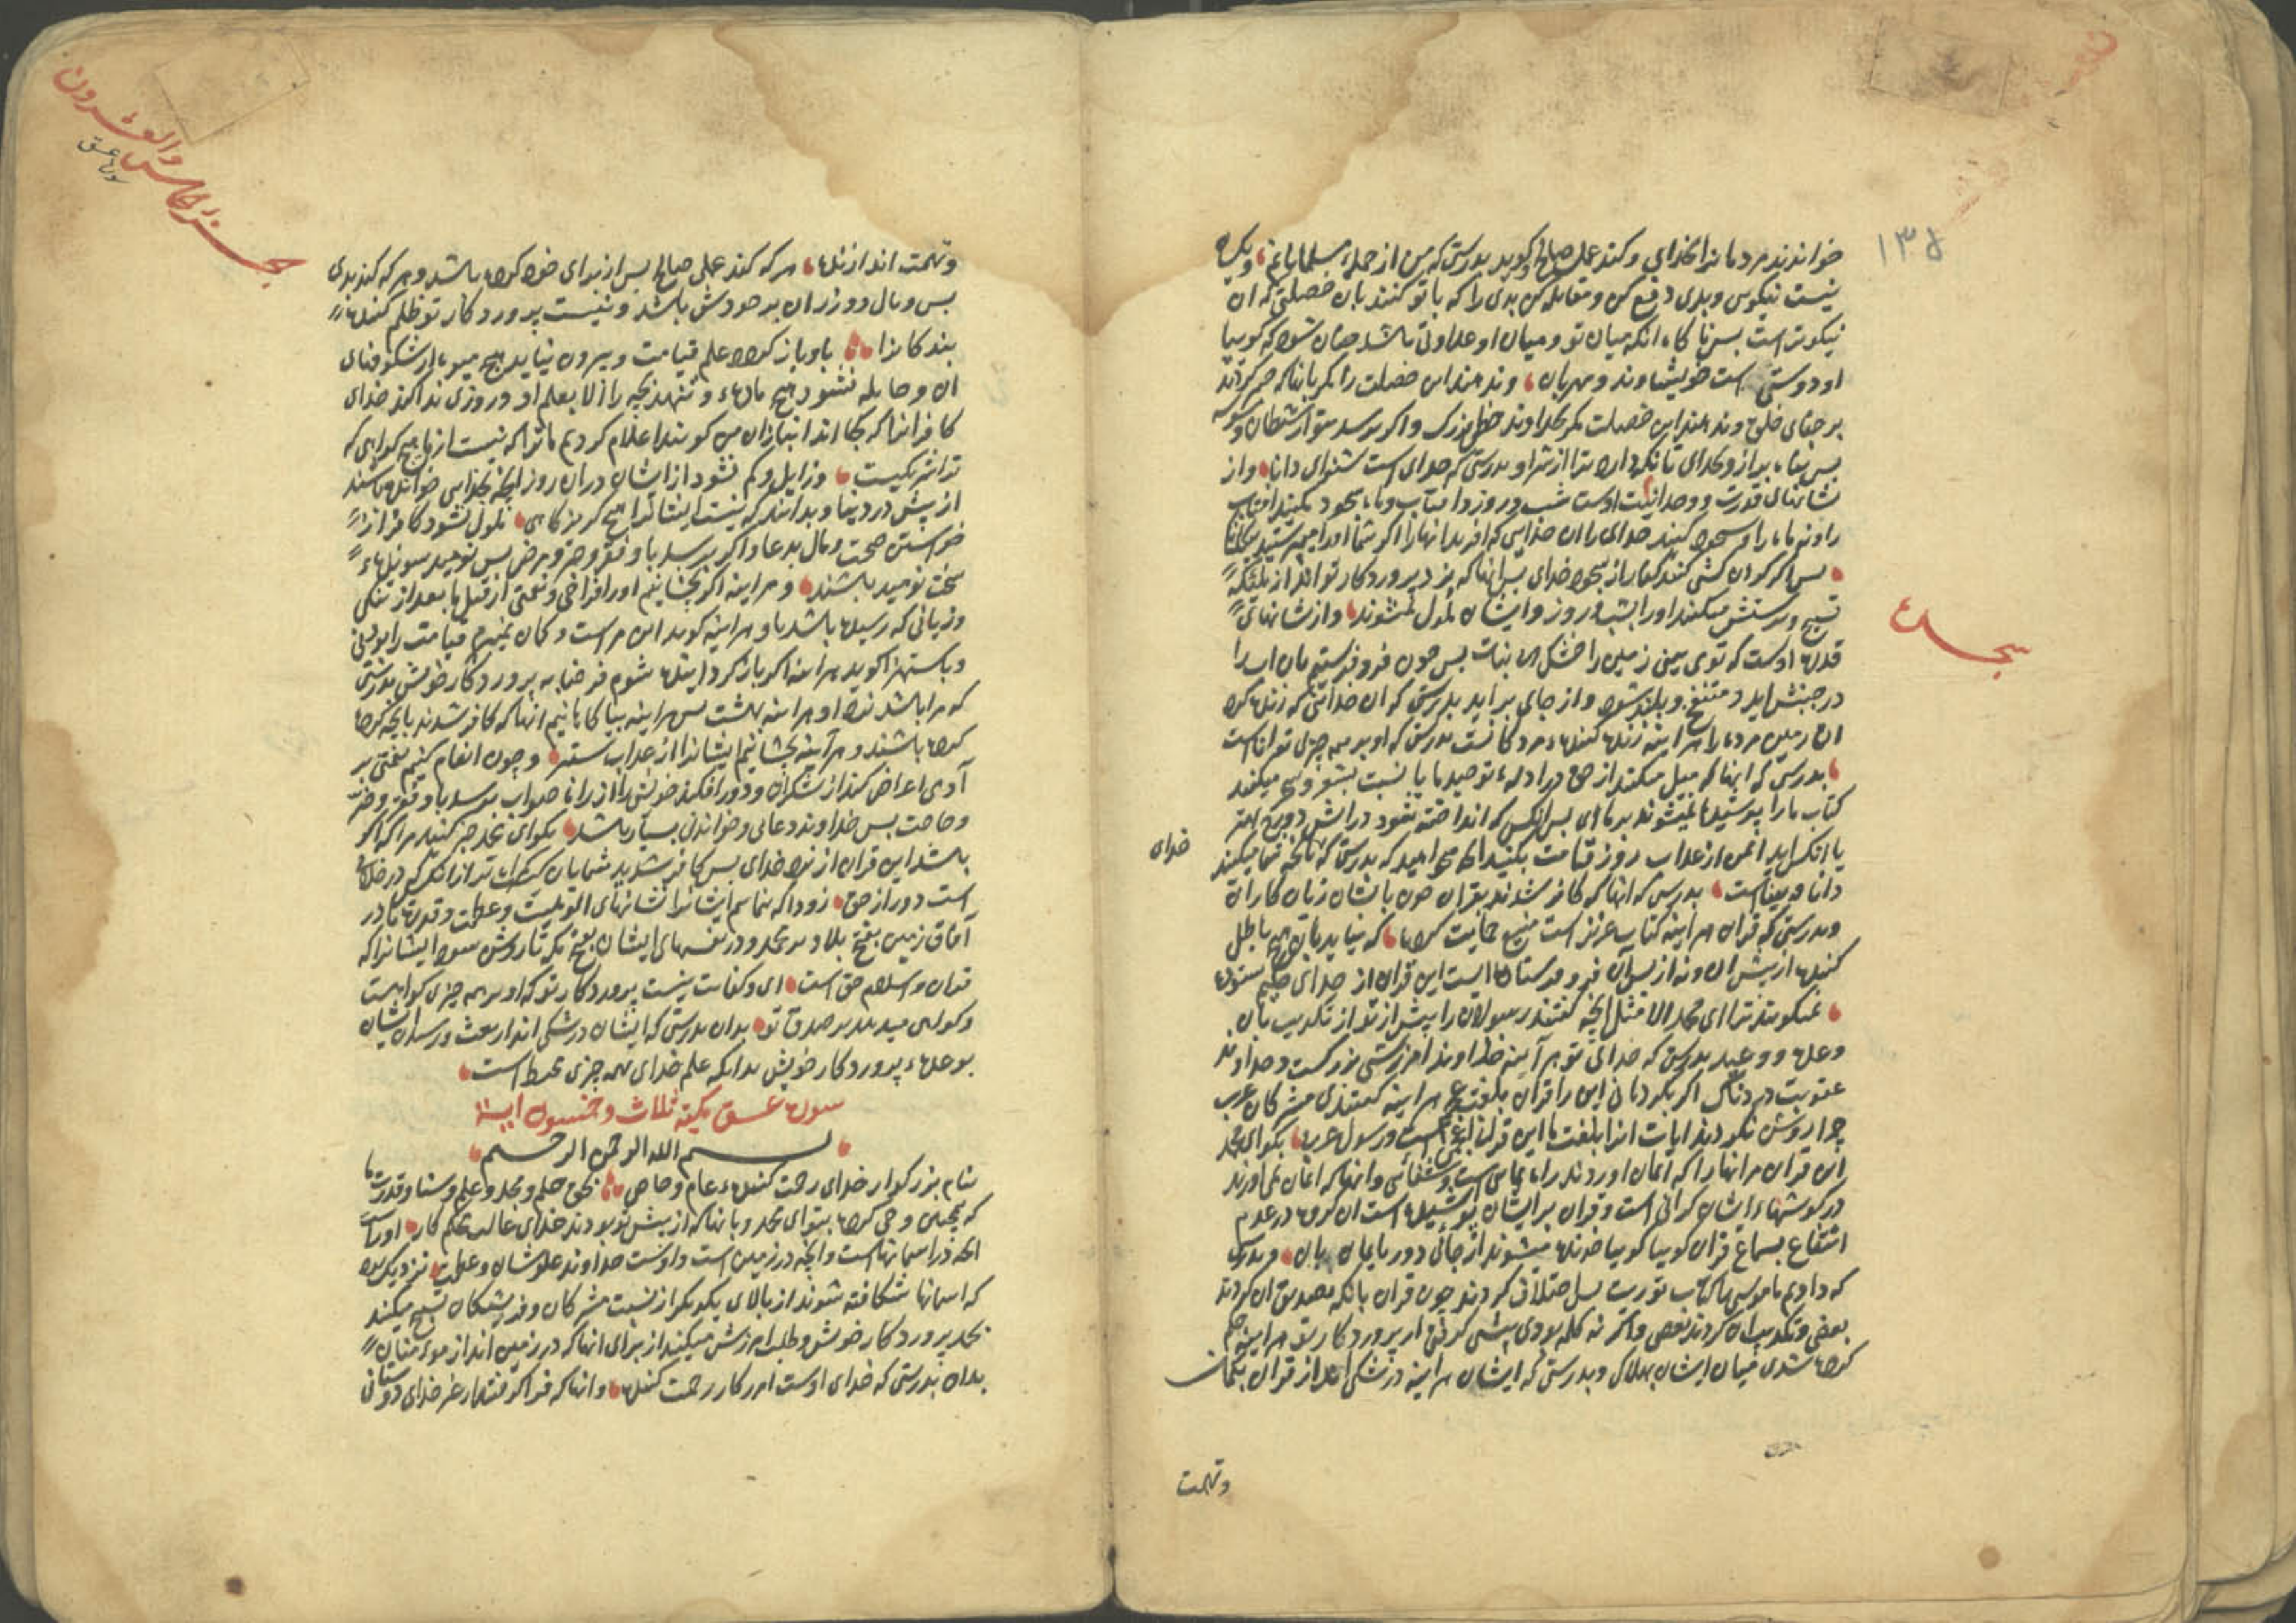 ۱۳۵
خواندند مردمانرا بخدای و کند عمل صالح و کوید بدرستی که من از جمله مسلمانانم و یکسان
نیست نیکویی و بدی دفع کن و مقابله کن بدی را که با تو کنند بان خصلتی که ان
نیکوتر است پس ناکاه انکه میان تو و میان او عداوتی باشد چنان شود که کوییا
او دوستی است خویشاوند و مهربان و ندهند این خصلت را مکر بانانکه صبر کردند
بر جفای خلق و ندهند این خصلت مکر بخداوند حظ بزرک و اکر برسد بتو از شیطان وسوسه
پس پناه بر از و بخدای تا نکهدارد ترا از شر او بدرستی که خدای است شنوای دانا و از
نشانهای قدرت و وحدانیت اوست شب و روز و افتاب و ماه سجود مکنید افتاب
را و نه ماه را و سجود کنید خدای را ان خدایی که افرید انها را اکر شما او را میپرستید
پس اکر کردن کشی کنند کفار از سجود خدای پس انها که نزد پروردکار تو اند از ملئکه
تسبیح و پرستش میکنند او را بشب و روز و ایشان ملول نمیشوند و از نشانهای
سجده
قدرت اوست که توی بینی زمین را خشک بی نبات پس چون فرو فرستیم بان اب را
در جنبش اید و منتفخ و بلند شود و از جای براید بدرستی که ان خدایی که زنده کرد
ان زمین مرده را هر اینه زنده کننده مردکانست بدرستی که او بر همه چیزی تواناست
بدرستی که انها که میل میکنند از حق در ادله توحید ما یا نسبت بشعر و سحر میکنند
کتاب ما را پوشیده نمیشوند بر ما ای پس انکس که انداخته شود در اتش دوزخ بهتر
یا انکس اید ایمن از عذاب روز قیامت بکنید انچه میخواهید که بدرستی که بانچه شما میکنید
خدای
دانا و بیناست بدرستی که انها که کافر شدند بقران چون بایشان زیان کارانند
و بدرستی که قران هر اینه کتاب عزیز است منیع حمایت کرده که نیاید بان هیچ باطل
کننده از پیش ان و نه از پس ان فرو فرستاده ایست این قران از خدای حکیم ستوده
نمیکویند ترا ای محمد الا مثل انچه کفتند رسولان را پیش از تو از تکذیب بان
وعده و وعید بدرستی که خدای تو هر آینه خداوند امرزشی بزرکست و خداوند
عقوبت دردناک اکر بکردمانی این را قران بلغت عجم هر اینه کفتندی مشرکان عرب
چرا روشن نکردیده ایات انرا بلغت ما این قران لغت عجمست و رسول عربی بکو ای محمد
این قران مر انها را که ایمان اوردند راه نمایی است و شفائی و انها که ایمان نمی اورند
در کوشهاء ایشان کرانی است و قران بر ایشان پوشیده است ان کروه در عدم
انتفاع بسماع قران کوییا کوییا خوانده میشوند از جائی دور بایمان بان و بدرستی
که دادیم ما موسی را کتاب توریت پس اختلاف کردند چون قران بانکه مصدق ان کردند
بعضی و تکذیب ان کردند بعضی و اکر نه کلمه بودی پیشی کرفته از پروردکار تو هر اینه حکم
کرده شدی میان ایشان بهلاک و بدرستی که ایشان هر اینه در شکی اند از قران بکمان
و تهمت
جزء الخامس والعشرون
سوره عسق
و تهمت اندازنده هر که کند عملی صالح پس از برای خود کرده باشد و هر که کند بدی
پس وبال و وزر ان بر خودش باشد و نیست پروردکار تو ظلم کننده
بندکانرا باو باز کردد علم قیامت و بیرون نیاید هیچ میوه از شکوفهای
ان و حامله نشود هیچ ماده و ننهد بچه را الا بعلم او و روزی ندا کند خدای
کافرانرا که کجا اند انبازان من کویند اعلام کردیم ما ترا که نیست از ما هیچ کواهی که
ترا شریکیست و زایل و کم شود از ایشان در ان روز انچه بخدایی خواندند
از پیش در دنیا و بدانند که نیست ایشانرا هیچ کریزکاهی ملول نشود کافر از
خواستن صحت و مال بدعا و اکر برسد باو فقر و ضر و مرض پس نومید شونده
سخت نومید باشند و هر اینه اکر بچشانیم او را فراخی و نعمتی از قبل ما بعد از تنکی
و زیانی که رسیده باشد باو هر اینه کوید این مر است و کمان نمیبرم قیامت را بودنی
و باستهزا کوید هر اینه اکر باز کردانیده شوم فرضا به پروردکار خویش بدرستی
که مرا باشد نزد او هر اینه بهشت پس هر اینه بیاکاهانیم انها که کافر شدند بانچه کرده
کرده باشند و هر آینه بچشانیم ایشانرا از عذاب ستبر و چون انعام کنیم نعمتی بر
آدمی اعراض کند از شکران و دور افکند خویش را از ان صواب و برسد باو فقر و ضر
و حاجت پس خداوند دعائی و خواندنی بسیار باشد بکو ای محمد خبر کنید مرا که اکر
باشد این قران از نزد خدای پس کافر شدید شما بان کیست کمراه تر از انکس که در خلاف
است دور از حق زود که بنماییم ایشانرا نشانهای الوهیت و عظمت و قدرت ما در
آفاق زمین بفتح بلاد بر محمد و در نفسهای ایشان بفتح مکه تا روشن شود ایشانرا که
قران و اسلام حق است ای و کفایت نیست پروردکار تو که او بر همه چیزی کواهست
و کواهی میدهد بر صدق تو بدان بدرستی که ایشان در شکی اند از بعث و رسیدن ایشان
بوعده پروردکار خویش بدانکه علم خدای بهمه چیزی محیط است
سورة عسق مکیة ثلاث و خمسون ایه
بسم الله الرحمن الرحیم
بنام بزرکوار خدای رحمت کننده عام و خاص بحق حلم و مجد و علم و سنا و قدرت ما
که همچنین وحی کرد بتو ای محمد و بانها که از پیش تو بودند خدای غالب حکم کار او راست
انچه در اسمانهاست و انچه در زمین است و اوست خداوند علو شان و عظمت نزدیک بود
که اسمانها شکافته شوند از بالای یکدیکر از نسبت مشرکان و فریشتکان تسبیح میکنند
بحمد پروردکار خویش و طلب امرزش میکنند از برای انها که در زمین اند از مومنان
بدان بدرستی که خدای اوست امرزکار رحمت کننده و انها که فرا کرفتند از غیر خدای دوستانی